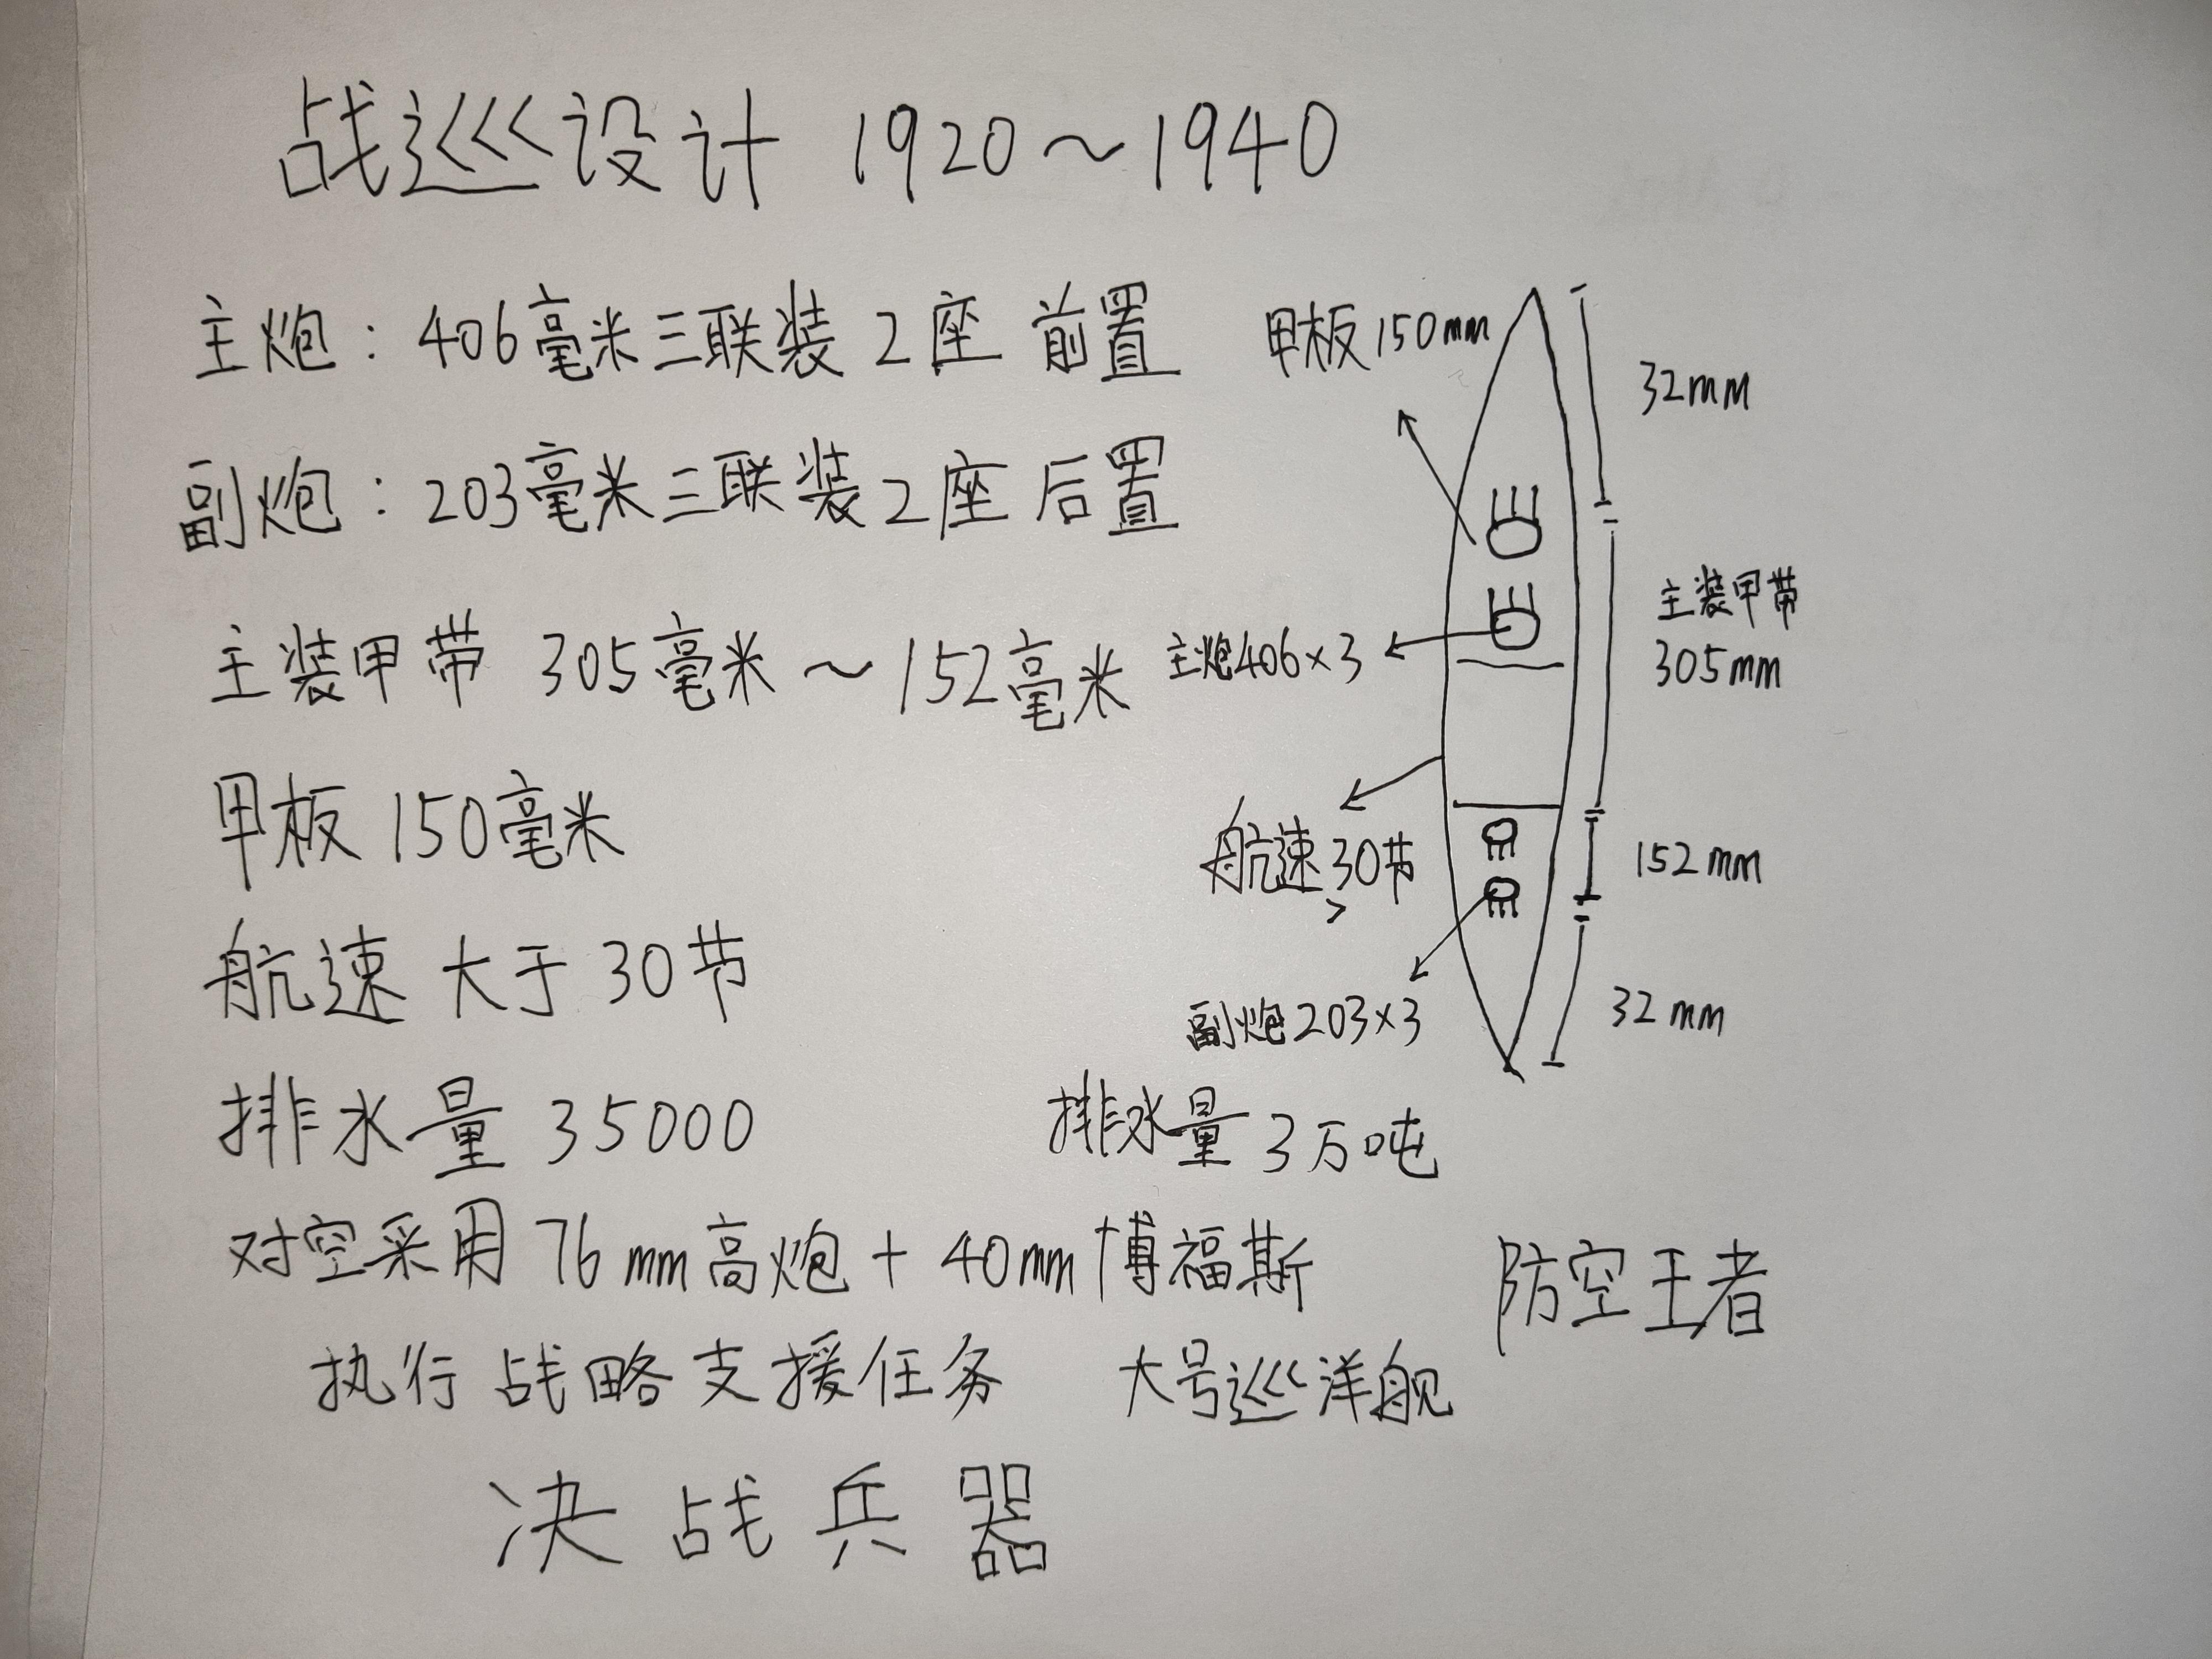 战巡设计 1920～1940
主炮：406毫米三联装2座 前置
副炮：203毫米三联装2座 后置
主装甲带 305毫米～152毫米
甲板 150毫米
航速 大于30节
排水量 35000
对空采用76mm高炮+40mm博福斯
执行战略支援任务 大号巡洋舰
决战兵器
甲板150mm
32mm
主装甲带
305mm
主炮406×3
航速30节
>
152mm
副炮203×3
32mm
排水量3万吨
防空王者